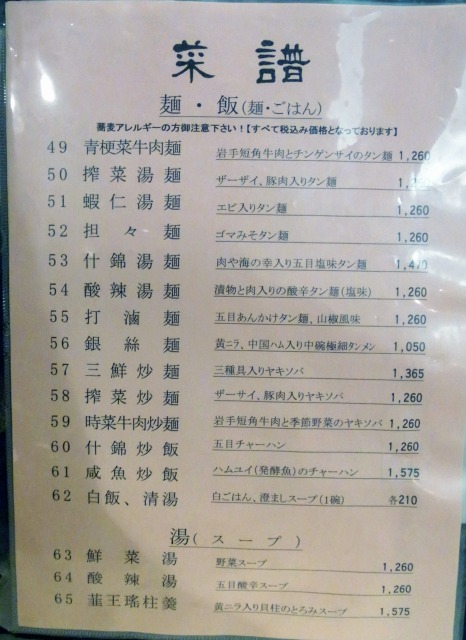 菜譜
麺・飯(麺・ごはん)
蕎麦アレルギーの方御注意下さい!【すべて税込み価格となっております】
49 青梗菜牛肉麺 岩手短角牛肉とチンゲンサイのタン麺 1,260
50 搾菜湯麺 ザーザイ、豚肉入りタン麺
51 蝦仁湯麺 エビ入りタン麺 1,260
52 担々麺 ゴマみそタン麺 1,260
53 什錦湯麺 肉や海の幸入り五目塩味タン麺 1,470
54 酸辣湯麺 漬物と肉入りの酸辛タン麺(塩味) 1,260
55 打滷麺 五目あんかけタン麺、山椒風味 1,260
56 銀絲麺 黄ニラ、中国ハム入り中碗極細タンメン 1,050
57 三鮮炒麺 三種具入りヤキソバ 1,365
58 搾菜炒麺 ザーサイ、豚肉入りヤキソバ 1,260
59 時菜牛肉炒麺 岩手短角牛肉と季節野菜のヤキソバ 1,260
60 什錦炒飯 五目チャーハン 1,260
61 咸魚炒飯 ハムユイ(発酵魚)のチャーハン 1,575
62 白飯、清湯 白ごはん、澄ましスープ(1碗) 各210
湯(スープ)
63 鮮菜湯 野菜スープ 1,260
64 酸辣湯 五目酸辛スープ 1,260
65 韮王瑤柱羹 黄ニラ入り貝柱のとろみスープ 1,575